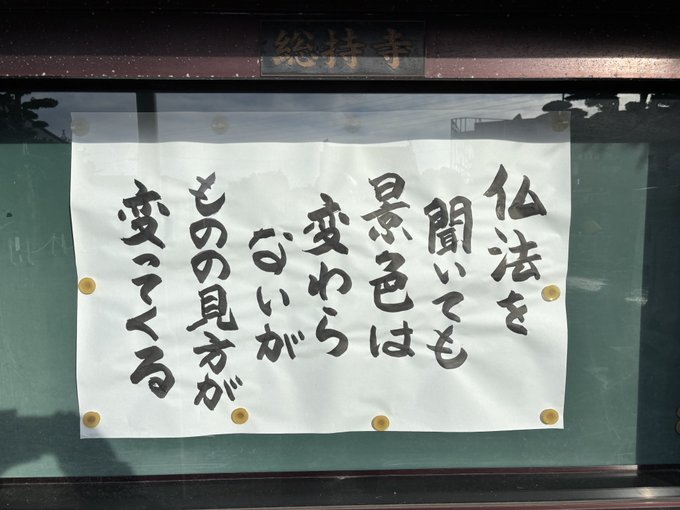 総持寺
仏法を
聞いても
景色は
変わら
ないが
ものの見方が
変ってくる